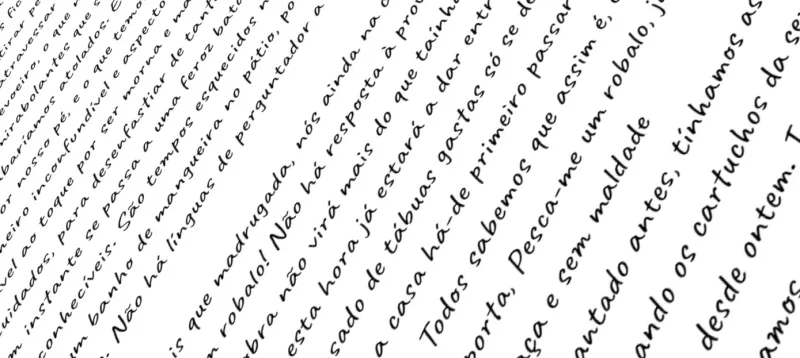 atravessar
nevoeiro, o que n
mirabolantes que s
abaríamos atolados. E
por nosso pé, e o que temo
heiro inconfundível e aspecto
vel ao toque por ser morna e m
uidados, para desenfastiar de tant
m instante se passa a uma feroz bat
conhecíveis. São tempos esquecidos n
um banho de mangueira no pátio, po
Não há línguas de perguntador a
is que madrugada, nós ainda na c
m robalo! Não há resposta à pro
obra não virá mais do que tainha
esta hora já estará a dar entr
sado de tábuas gastas só se de
a casa há-de primeiro passar
Todos sabemos que assim é,
porta, Pesca-me um robalo, j
aça e sem maldade
antado antes, tínhamos as
ando os cartuchos da se
desde ontem. T
amos